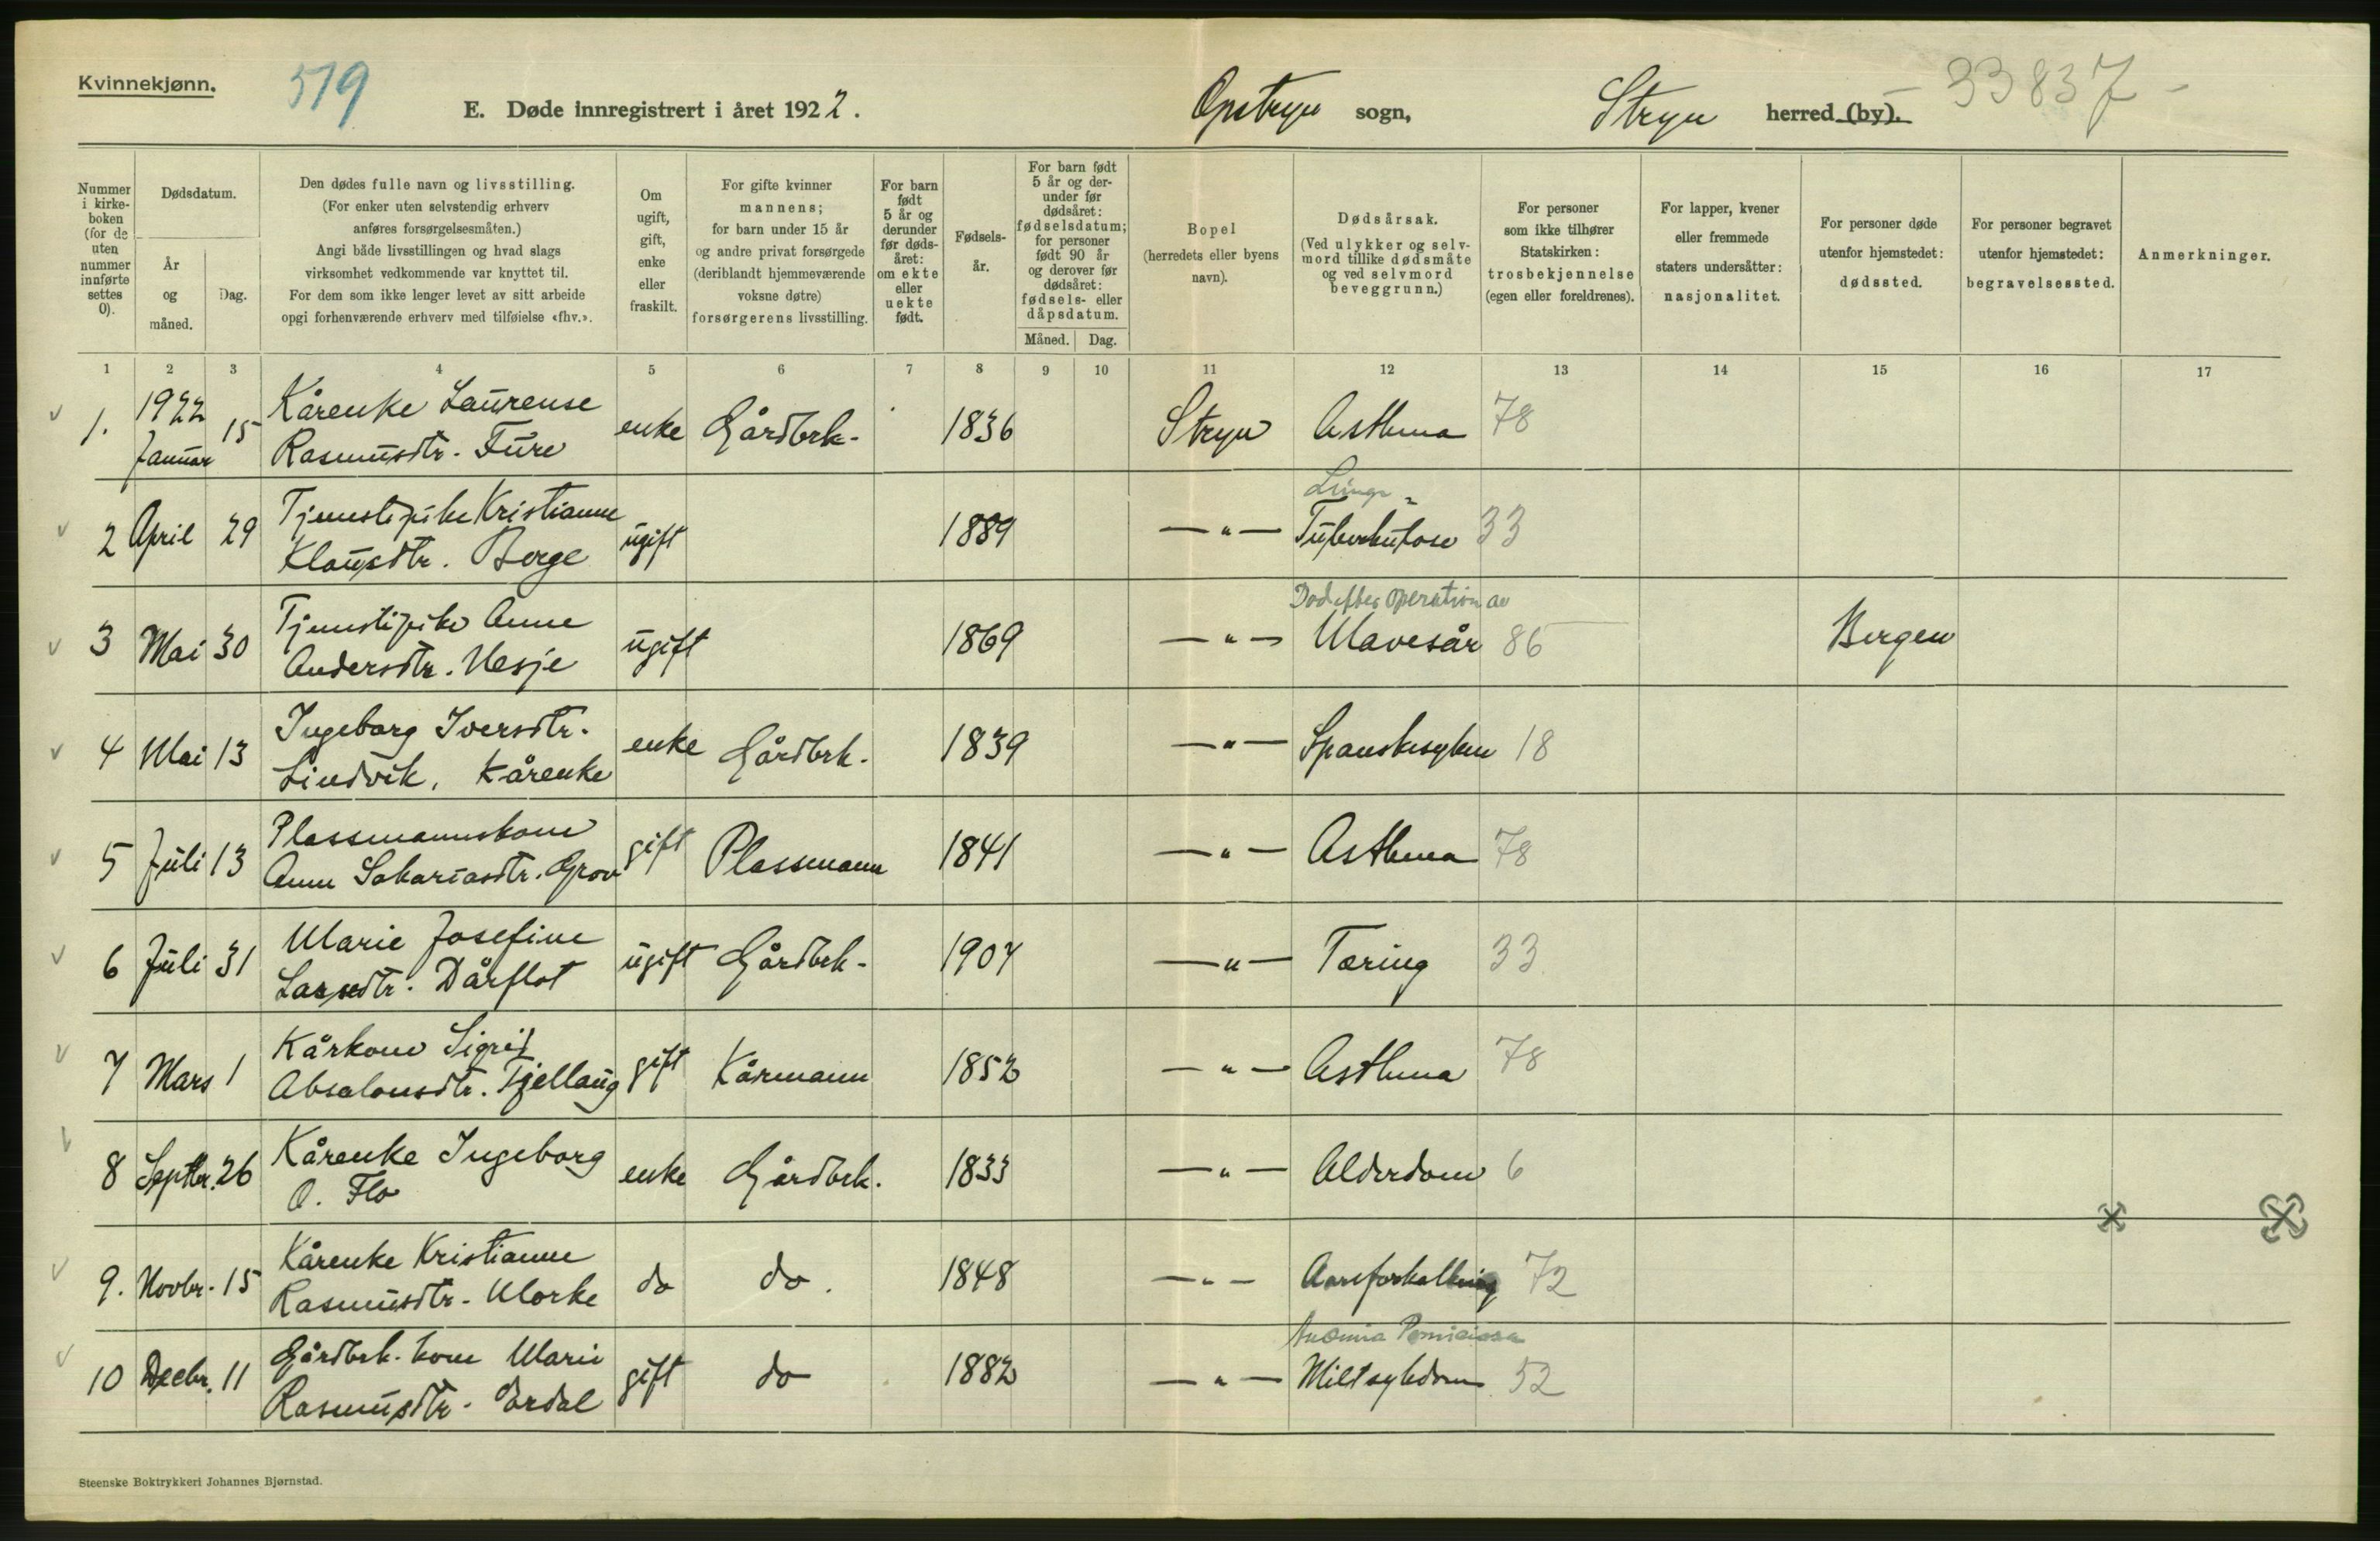 Kvinnekjønn.
519
E. Døde innregistrert i året 1922.
Opstryn sogn,
Stryn herred (by).
33837 -
Nummer i kirke-boken (for de uten nummer innførte settes 0).
Dødsdatum.
År og måned.
Dag.
Den dødes fulle navn og livsstilling.
(For enker uten selvstendig erhverv
anføres forsørgelsesmåten.)
Angi både livsstillingen og hvad slags
virksomhet vedkommende var knyttet til.
For dem som ikke lenger levet av sitt arbeide
opgi forhenværende erhverv med tilføielse «fhv.».
Om ugift, gift, enke eller fraskilt.
For gifte kvinner
mannens;
for barn under 15 år
og andre privat forsørgede
(deriblandt hjemmeværende
voksne døtre)
forsørgerens livsstilling.
For barn født 5 år og derunder før døds-året: om ekte eller uekte født.
Fødsels-år.
For barn født 5 år og der-under før dødsåret: fødselsdatum; for personer født 90 år og derover før dødsåret: fødsels- eller dåpsdatum.
Måned. Dag.
Bopel
(herredets eller byens
navn).
Dødsårsak.
(Ved ulykker og selv-
mord tillike dødsmåte
og ved selvmord
beveggrunn.)
For personer
som ikke tilhører
Statskirken:
trosbekjennelse
(egen eller foreldrenes).
For lapper, kvener
eller fremmede
staters undersåtter:
nasjonalitet.
For personer døde
utenfor hjemstedet:
dødssted.
For personer begravet
utenfor hjemstedet:
begravelsessted.
Anmerkninger.
1 2 3 4 5 6 7 8 9 10 11 12 13 14 15 16 17
1. 1922 Januar 15 Kårenke Laurense
Rasmusdtr. Fure enke Gårdbrk. 1836 Stryn Asthma 78
2 April 29 Tjenestepike Kristianne
Klausdtr. Berge ugift 1889 —"— Lunge-
Tuberkulose 33
3 Mai 30 Tjenestepike Anne
Andersdtr. Hesje ugift 1869 —"— Død efter operation av
Mavesår 86 Bergen
4 Mai 13 Ingeborg Iversdtr.
Lindvik, Kårenke enke Gårdbrk. 1839 —"— Spanskesyken 18
5 Juli 13 Plassmannskone
Anne Sakariasdtr. Grov gift Plassmann 1841 —"— Asthma 78
6 Juli 31 Marie Josefine
Larsdtr. Dårflot ugift Gårdbrk. 1907 —"— Tæring 33
7 Mars 1 Kårkone Sigrid
Absalonsdtr. Tjellaug gift Kårmann 1852 —"— Asthma 78
8 Septbr. 26 Kårenke Ingeborg
O. Flo enke Gårdbrk. 1833 —"— Alderdom 6
9. Novbr. 15 Kårenke Kristianne
Rasmusdtr. Marke do do. 1848 —"— Aareforkalkning 72
10 Decbr. 11 Gårdbrk. kone Marie
Rasmusdtr. Erdal gift do 1882 —"— Anæmia Perniciosa
Miltsykdom 52
Steenske Boktrykkeri Johannes Bjørnstad.